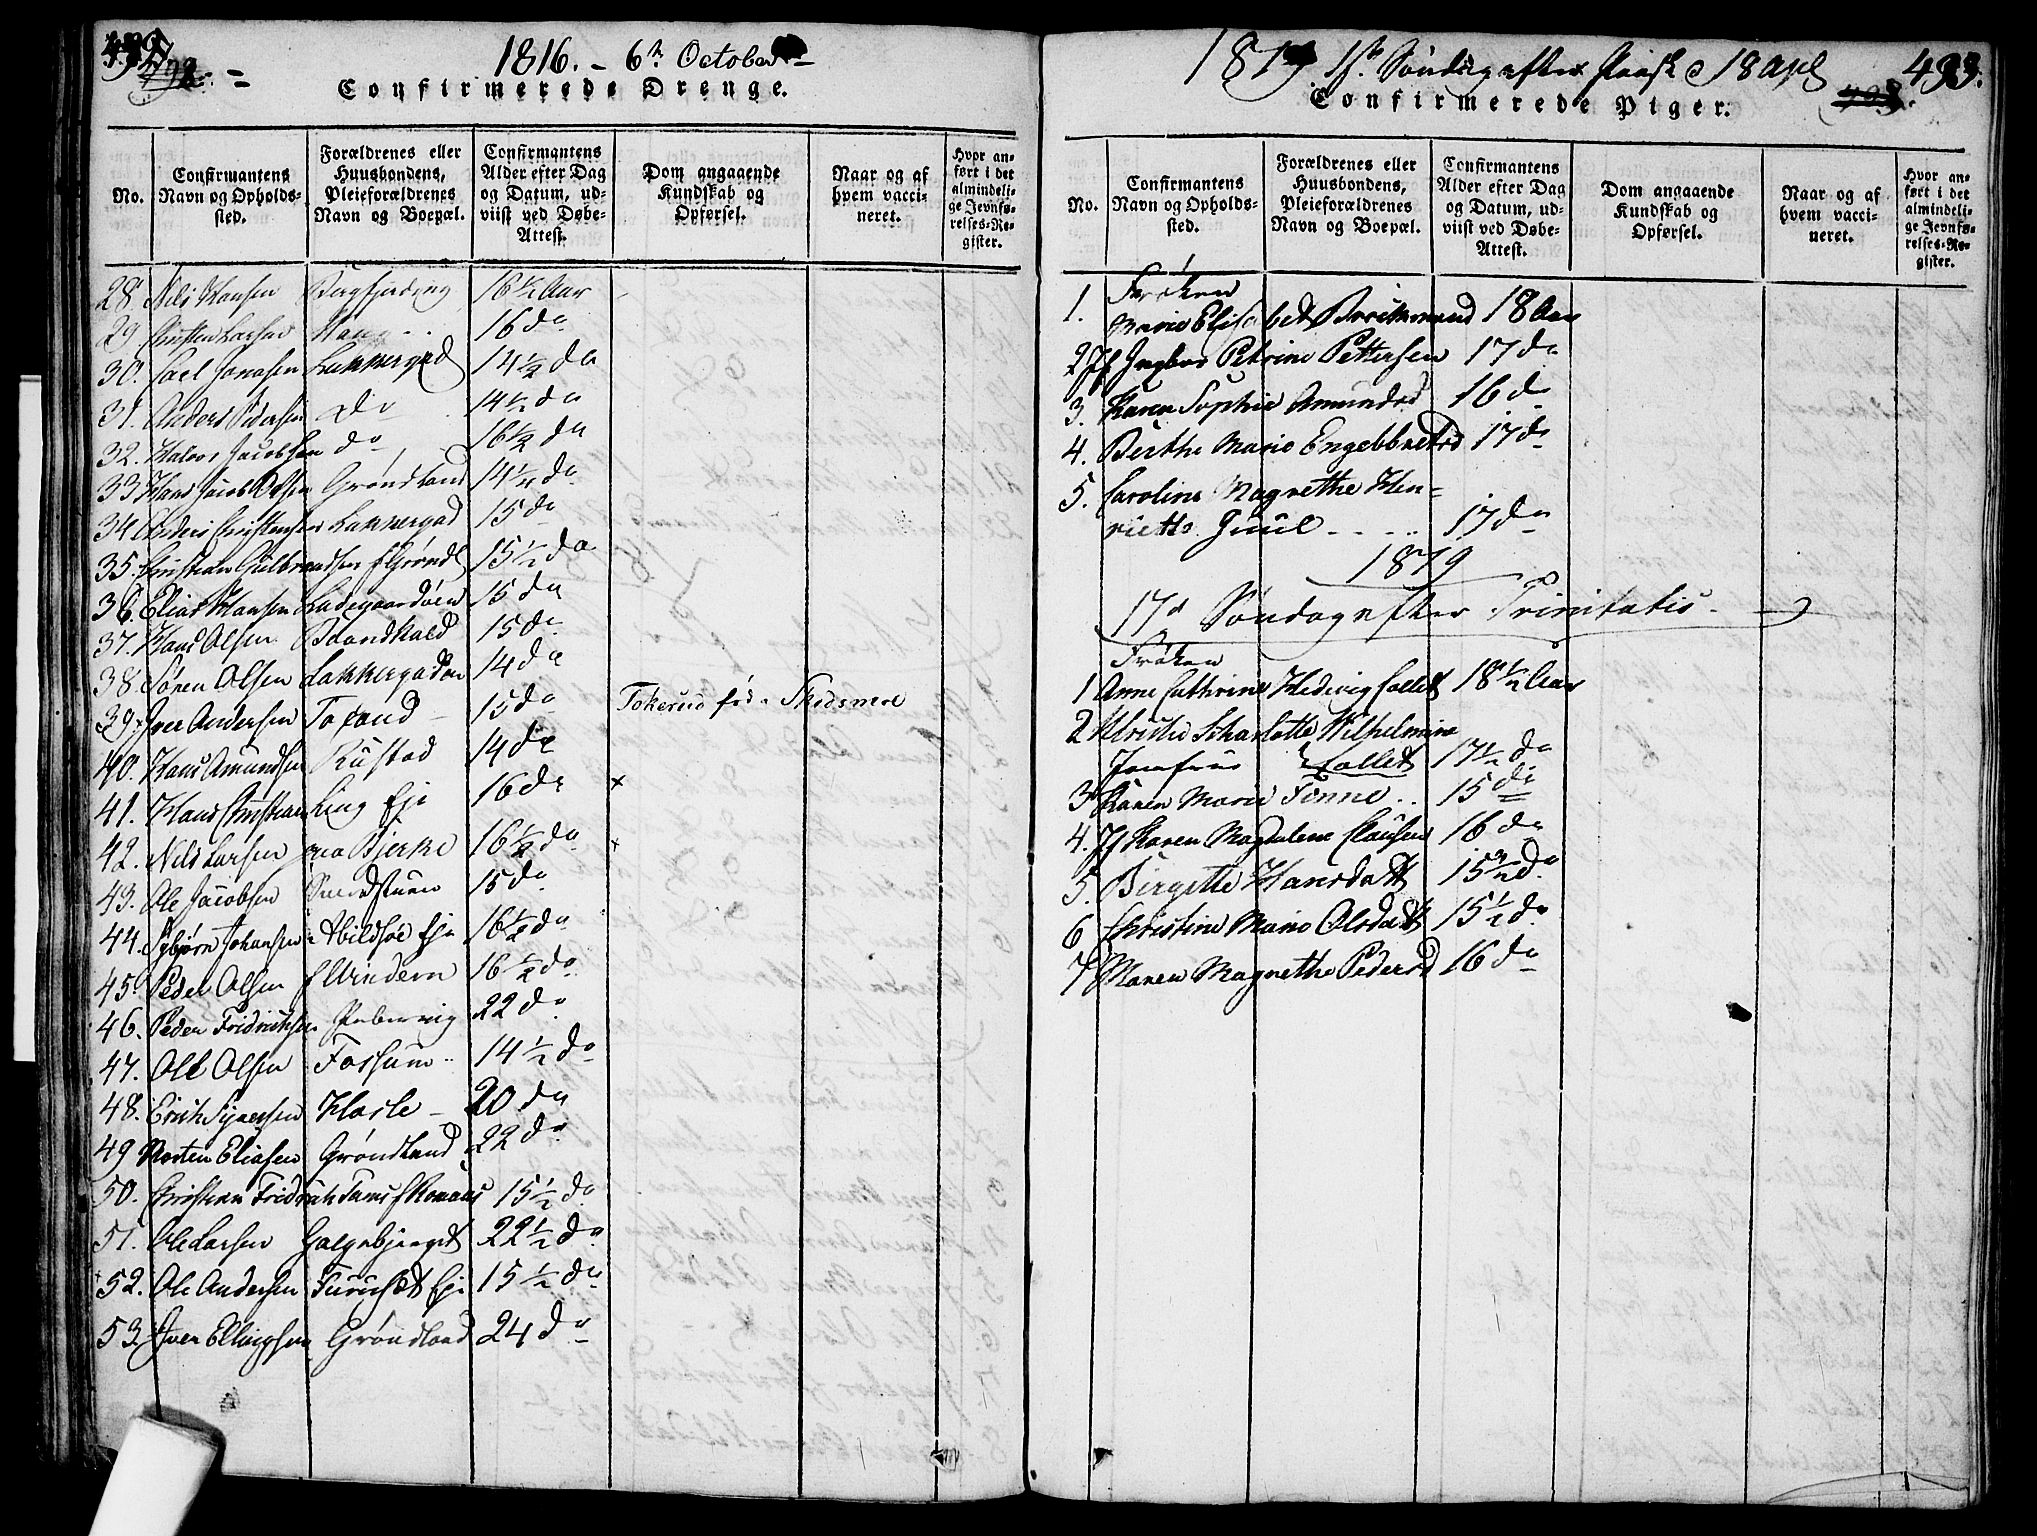 1816. - 6te October
Confirmerede Drenge.
No.
Confirmantens Navn og Opholds-sted.
Forældrenes eller Huusbondens, Pleieforældrenes Navn og Boepæl.
Confirmantens Alder efter Dag og Datum, ud-viist ved Døbe-Attest.
Dom angaaende Kundskab og Opførsel.
Naar og af hvem vacci-neret.
Hvor an-ført i det almindeli-ge Jevnfø-relses-Re-gister.
28 Nils Hansen 16½ Aar
29 Christen Larsen 16 do
30. Carl Jonasen Lakkergad 14½ do
31. Anders Pedersen do 14½ do
32. Halvor Jacobsen do 16½ do
33 Hans Jacob Olsen Grøndland 14¼ do
34 Anders Christensen Lakkergad 15 do
35. Christian Gulbrandsen f Grøndl 15½ do
36. Elias Hansen Ladegaardsøen 15 do
37. Hans Olsen 15 do
38. Søren Olsen Lakkergaden 14 do
39. Iver Andersen 15 do Tokerud fød i Skedsmoe
40. Hans Amundsen Rustad 14 do
41. Hans Christian Eje 16 do x
42. Nils Larsen Bjerke 16½ do x
43. Ole Jacobsen 15 do
44. Johansen Abildsøe Eje 16½ do
45. Peder Olsen f Vindern 16½ do
46. Peder Fridrichsen Pebervig 22 do
47. Ole Olsen Fossum 14½ do
48. Erich Syversen Hasle - 20 do
49 Morten Eliasen Grøndland 22 do
50. Christian Fridrich 15½ do
51. Ole Larsen Galgebjerget 22½ do
52. Ole Andersen Furuset Eje 15½ do
53. Iver Ellingsen Grøndland 24 do
1819 1ste Søndag efter Paaske 18 Apl
493.
Confirmerede Piger.
No.
Confirmantens Navn og Opholds-sted.
Forældrenes eller Huusbondens, Pleieforældrenes Navn og Boepæl.
Confirmantens Alder efter Dag og Datum, ud-viist ved Døbe-Attest.
Dom angaaende Kundskab og Opførsel.
Naar og af hvem vacci-neret.
Hvor an-ført i det almindeli-ge Jevnfø-relses-Re-gister.
Frøken
1. Marie Elisabeth 18 Aar
2 Jf Ingbor Petrine Pettersen 17 do
3. Karen Sophie Amundsd 16 do
4. Berthe Marie Engebbretsd 17 do
5. Caroline Magrethe Hen=
riette Juul - - - - 17 do
1819
17de Søndag efter Trinitatis.
Frøken
1 Anne Cathrine Hedevig Collet 18½ Aar
2 Ulriche Scharlotte Wilhelmine
Jomfrue Collet 17½ do
3 Karen Marie Finne . . 15 do
4. Jf Karen Magdalene Clausen 16 do
5. Birgitte Hansdatt 15¾ do
6 Christine Marie Olsdatt 15½ do
7 Maren Magrethe Pedersd 16 do